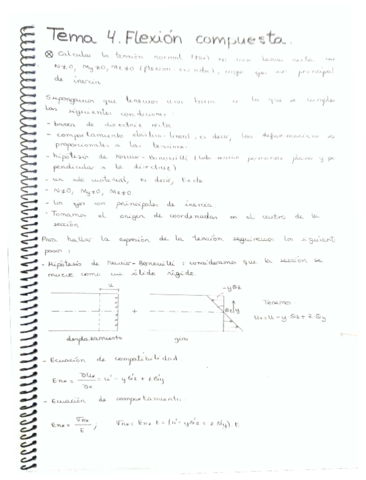 Tema 4. Flexión compuesta.
⊗ Calcular la tensión normal (σxx) en una barra recta con
N≠0, My≠0, Mz≠0 (flexión esviada), sigo que es principal
de inercia
Supongamos que tenemos una barra en la que se cumplen
las siguientes condiciones:
- barra de directriz recta
- comportamiento elástico-lineal, es decir, las deformaciones es
proporcionales a las tensiones.
- hipótesis de Navier-Bernouilli (toda sección permanece plana y per
pendicular a la directriz)
- un solo material, es decir, E=cte
- N≠0, My≠0, Mz≠0
- los ejes son principales de inercia
- Tomamos el origen de coordenadas en el centro de la
sección
Para hallar la expresión de la tensión seguiremos los siguient
pasos:
- Hipótesis de Navier-Bernouilli: consideramos que la sección se
mueve como un sólido rígido
u
-yθz
+
Tenemos
Ux=u-yθz+zθy
desplazamiento
giro
- Ecuación de compatibilidad
Exx = ∂Ux/∂x = u' - yθ'z + zθ'y
- Ecuación de comportamiento
Exx = σxx/E ; σxx = Exx E = (u' - yθ'z + zθ'y) E